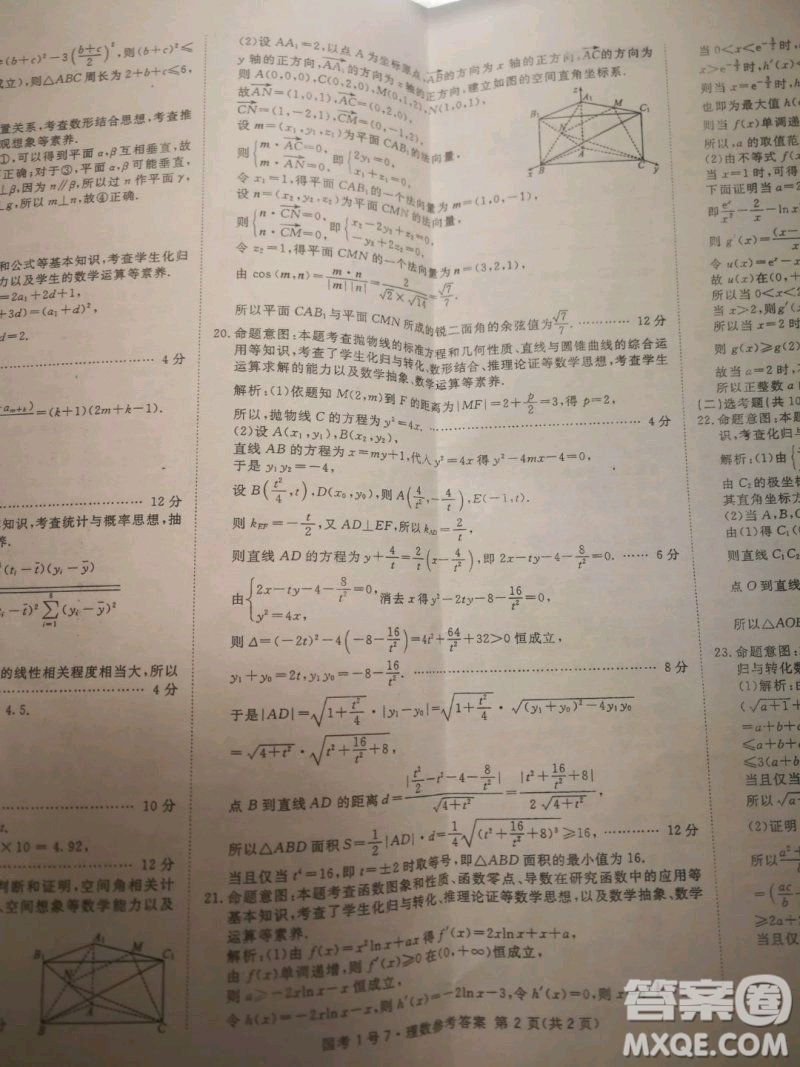 =(b+c)²-3((b+c)/2)²,则(b+c)²≤
成立),则△ABC周长为2+b+c≤6,
置关系,考查数形结合思想,考查推
观想象等素养.
①,可以得到平面α,β互相垂直,故
正确;对于③,平面α,β可能垂直,
⊥β,因为n∥β,所以过n作平面γ,
⊥g,所以m⊥n,故④正确.
和公式等基本知识,考查学生化归
力以及学生的数学运算等素养.
=2a₁+2d+1,
+3d)=(a₁+d)²,
d=2.
4分
=(k+1)(2m+k).
12分
本知识,考查统计与概率思想,抽
养.
的线性相关程度相当大,所以
4分
4.5.
10分
t.
×10=4.92,
12分
判断和证明,空间角相关计
空间想象等数学能力以及
(2)设AA₁=2,以点A为坐标原点,AB的方向为x轴的正方向,AC的方向为
y轴的正方向,AA₁的方向为z轴的正方向,建立如图的空间直角坐标系.
则A(0,0,0),C(0,2,0),M(0,1,2),N(1,0,1),
故AN=(1,0,1),AC=(0,2,0),
CN=(1,-2,1),CM=(0,-1,2),
设m=(x₁,y₁,z₁)为平面CAB₁的法向量,
则{m·AC=0,m·AN=0,即{2y₁=0,x₁+z₁=0,
令x₁=1,得平面CAB₁的一个法向量为m=(1,0,-1),
设n=(x₂,y₂,z₂)为平面CMN的法向量,
则{n·CN=0,n·CM=0,即{x₂-2y₂+z₂=0,-y₂+2z₂=0,
令z₂=1,得平面CMN的一个法向量为n=(3,2,1),
由cos⟨m,n⟩=m·n/|m||n|=2/(√2×√14)=√7/7.
所以平面CAB₁与平面CMN所成的锐二面角的余弦值为√7/7. 12分
20.命题意图:本题考查抛物线的标准方程和几何性质、直线与圆锥曲线的综合运
用等知识,考查了学生化归与转化、数形结合、推理论证等数学思想,考查学生
运算求解的能力以及数学抽象、数学运算等素养.
解析:(1)依题知M(2,m)到F的距离为|MF|=2+p/2=3,得p=2,
所以,抛物线C的方程为y²=4x. 4分
(2)设A(x₁,y₁),B(x₂,y₂),
直线AB的方程为x=my+1,代入y²=4x得y²-4my-4=0,
于是y₁y₂=-4,
设B(t²/4,t),D(x₀,y₀),则A(4/t²,-4/t),E(-1,t).
则k_EF=-t/2,又AD⊥EF,所以k_AD=2/t,
则直线AD的方程为y+4/t=2/t(x-4/t²),即2x-ty-4-8/t²=0. 6分
由{2x-ty-4-8/t²=0,y²=4x,消去x得y²-2ty-8-16/t²=0,
则Δ=(-2t)²-4(-8-16/t²)=4t²+64/t²+32>0恒成立,
y₁+y₀=2t,y₁y₀=-8-16/t². 8分
于是|AD|=√(1+t²/4)·|y₁-y₀|=√(1+t²/4)·√((y₁+y₀)²-4y₁y₀)
=√(4+t²)·√(t²+16/t²+8),
点B到直线AD的距离d=|t²/2-t²-4-8/t²|/√(4+t²)=|t²+16/t²+8|/(2√(4+t²)),
所以△ABD面积S=1/2|AD|·d=1/4√((t²+16/t²+8)³)≥16, 12分
当且仅当t⁴=16,即t=±2时取等号,即△ABD面积的最小值为16.
21.命题意图:本题考查函数图象和性质、函数零点、导数在研究函数中的应用等
基本知识,考查了学生化归与转化、推理论证等数学思想,以及数学抽象、数学
运算等素养.
解析:(1)由f(x)=x²lnx+ax得f′(x)=2xlnx+x+a,
由f(x)单调递增,则f′(x)≥0在(0,+∞)恒成立,
则a≥-2xlnx-x恒成立,
令h(x)=-2xlnx-x,则h′(x)=-2lnx-3,令h′(x)=0,则x=
国考1号7·理数参考答案 第2页(共2页)
也即为最大值h(
则当f(x)单调递
所以,a的取值范
(2)由不等式f(x
当x=1时,可得
下面证明当a=2
令u(x)=
故u(x)在(0,
所以当0<x<2
当x>2,则g′(
则g(x)≥g(2)
故当a=2时,
所以正整数a
(二)选考题(共10
22.命题意图:本
识,考查化归与
解析:(1)由
由C₂的极坐
其直角坐标方
(2)当A,B,
由(1)得C
则直线C₁C₂
点O到直线
所以△AOB
23.命题意图:
归与转化数
(1)解析:
(√a+1+
=a+b+
≤a+b+
≤3(a+b
当且仅当
所以
(2)证明
所以
≥2a+
当且仅
答案圈
MXQE.COM